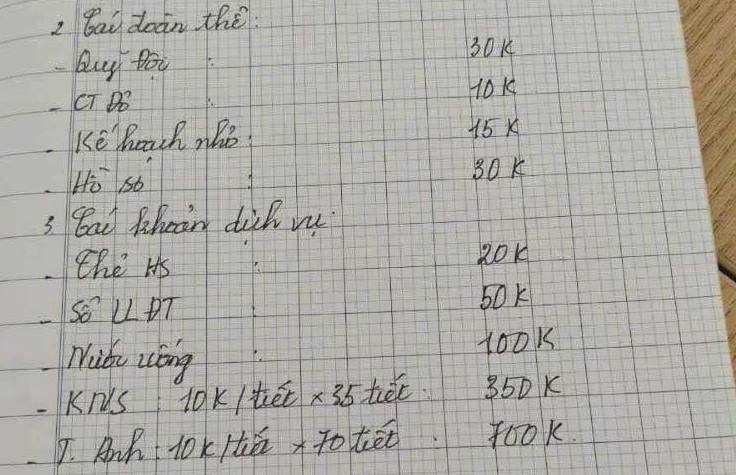 2 Các đoàn thể:
- Quỹ Đội : 30K
- CTĐỏ : 10K
- Kế hoạch nhỏ: 15K
- Hồ sơ : 30K
3 Các khoản dịch vụ:
- Thẻ HS : 20K
- Sổ LLĐT : 50K
- Nước uống : 100K
- KNS : 10K/tiết × 35 tiết. 350K
- T. Anh: 10K/tiết × 70 tiết . 700K.